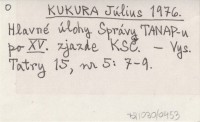 O
KUKURA Július 1976.
Hlavné úlohy Správy TANAP-u
po XV. zjazde KSČ. — Vys.
Tatry 15, nr 5: 7-9.